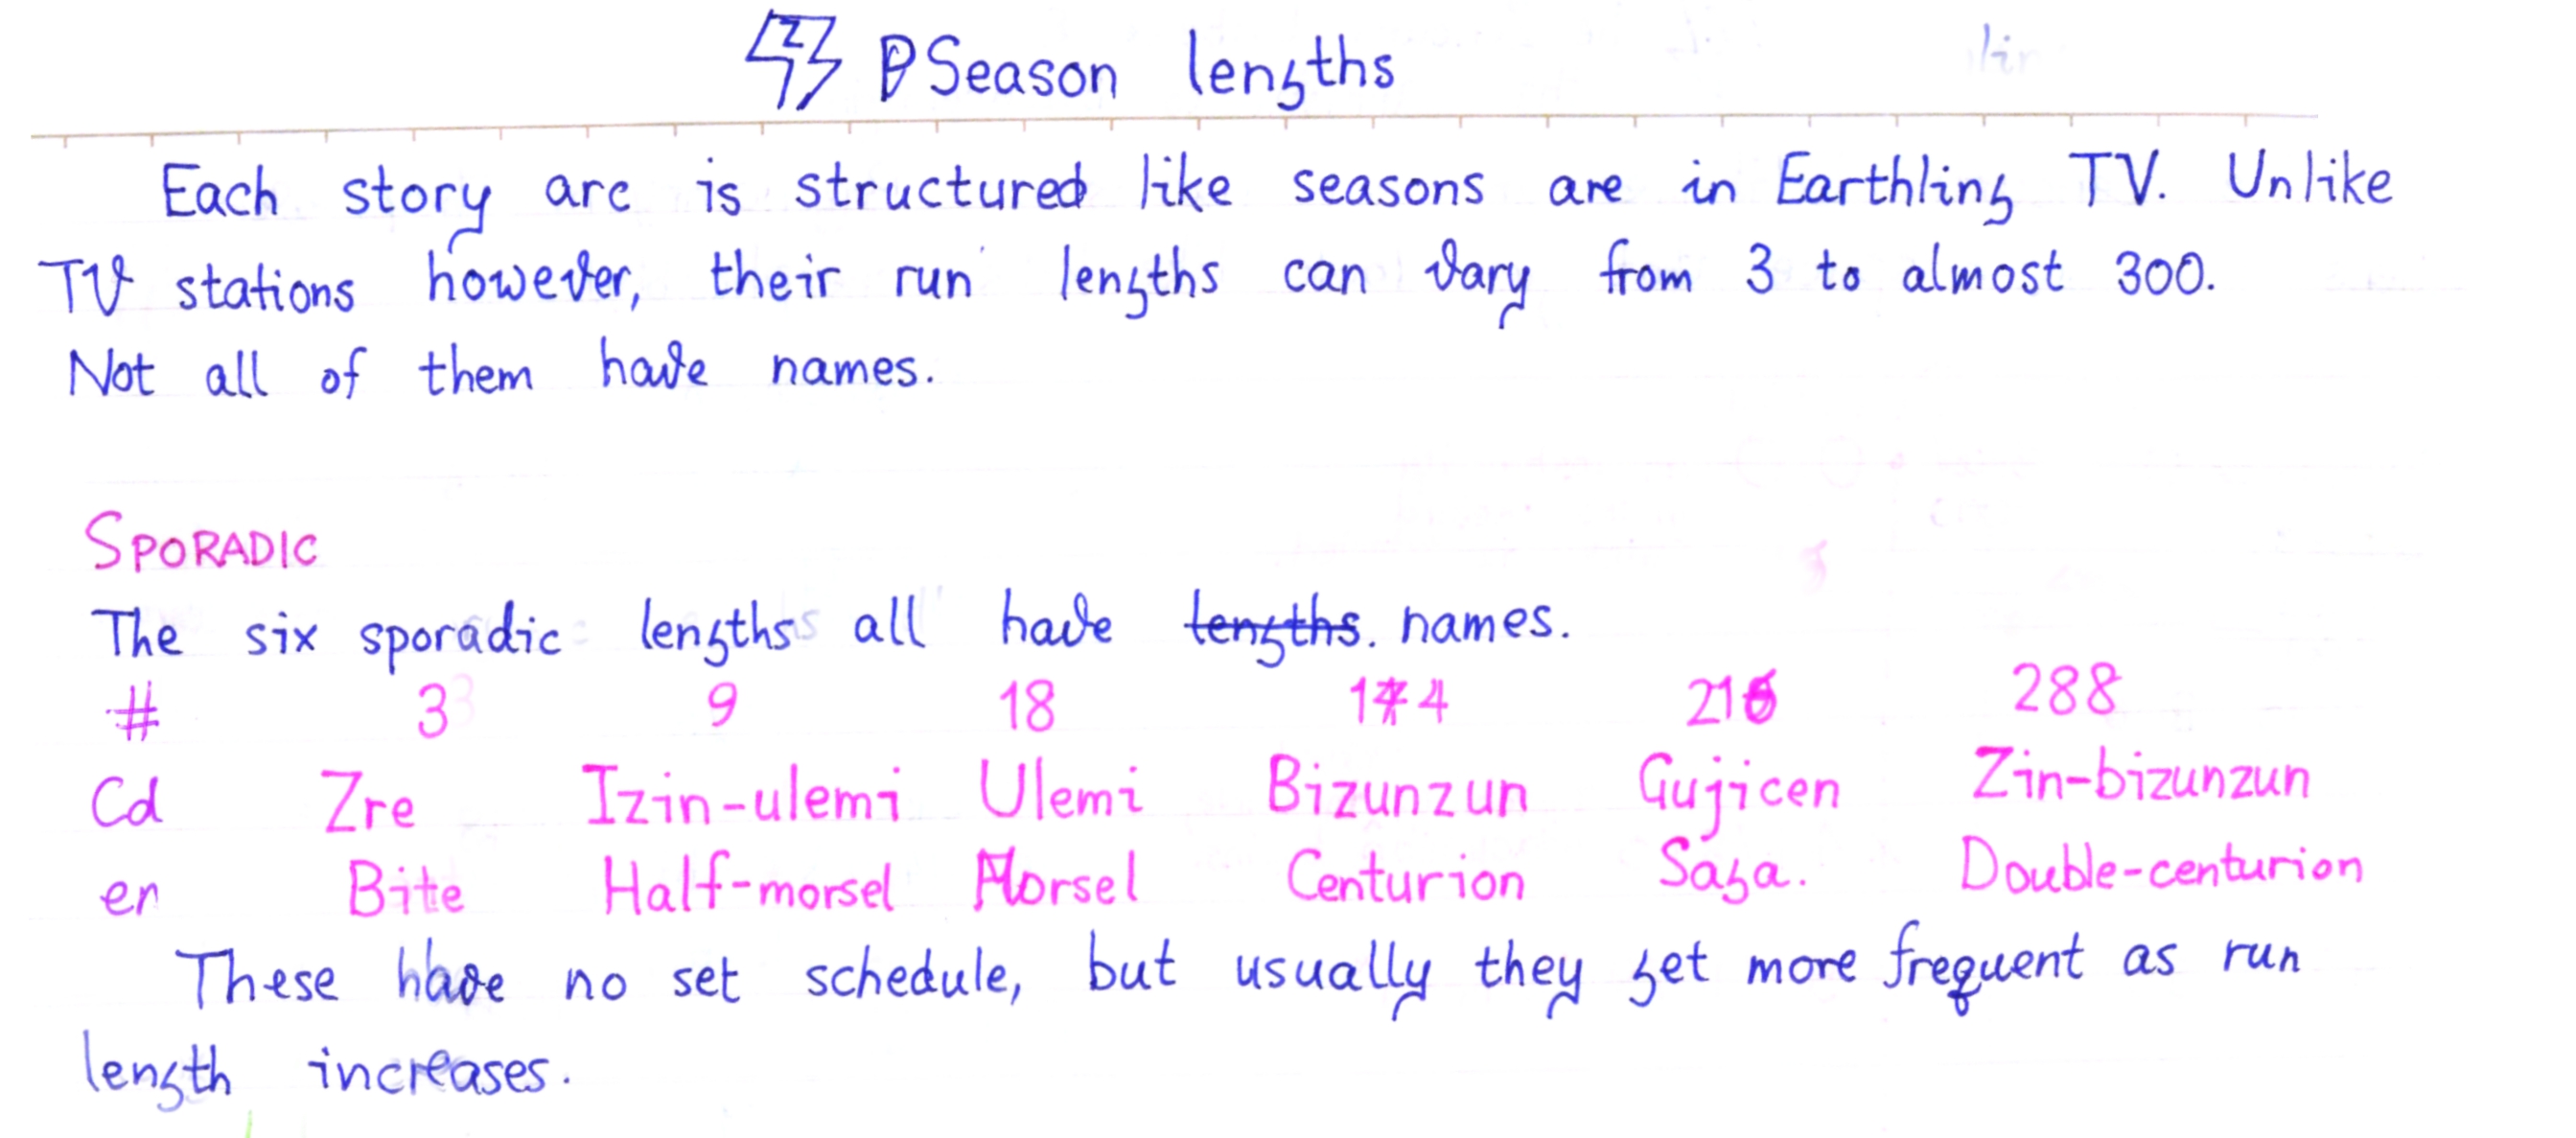 Season lengths
Each story arc is structured like seasons are in Earthling TV. Unlike
TV stations however, their run lengths can vary from 3 to almost 300.
Not all of them have names.
SPORADIC
The six sporadic lengths all have lengths. names.
# 3 9 18 144 216 288
Cd Zre Izin-ulemi Ulemi Bizunzun Gujicen Zin-bizunzun
en Bite Half-morsel Morsel Centurion Saga. Double-centurion
These have no set schedule, but usually they get more frequent as run
length increases.